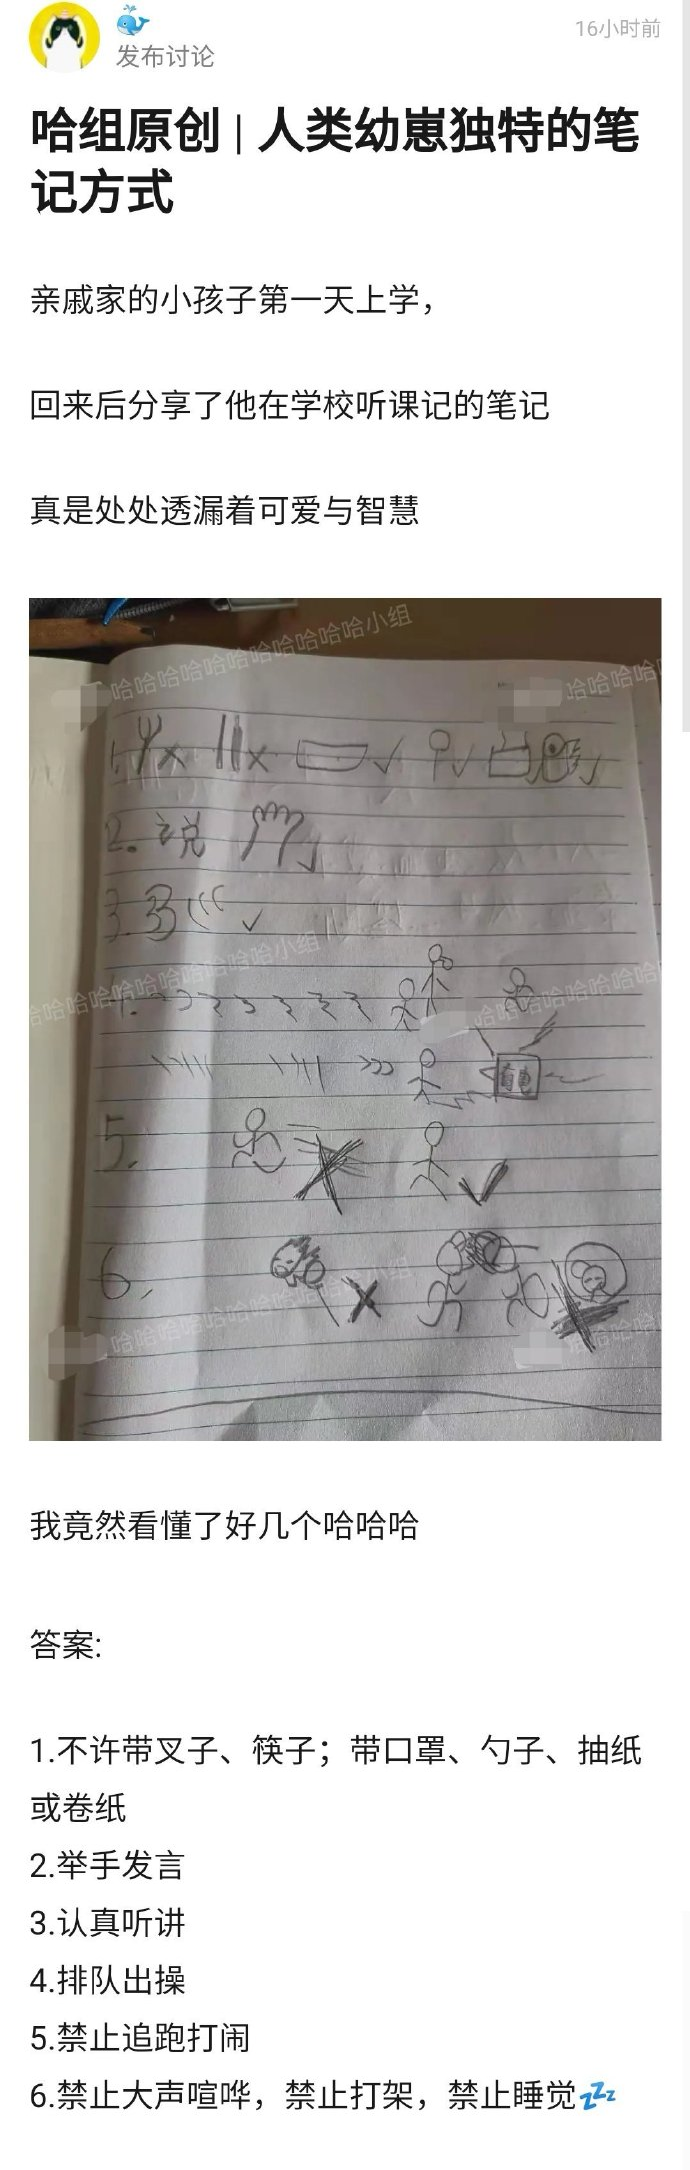 发布讨论
16小时前
哈组原创 | 人类幼崽独特的笔
记方式
亲戚家的小孩子第一天上学，
回来后分享了他在学校听课记的笔记
真是处处透漏着可爱与智慧
哈哈哈哈哈哈哈哈哈哈哈小组
哈哈哈哈
1.
2. 说
3.
哈哈哈哈哈哈哈哈哈哈哈小组
哈哈哈哈哈哈哈哈
4.
5.
6.
哈哈哈哈哈哈哈哈哈哈哈小组
哈哈哈哈
我竟然看懂了好几个哈哈哈
答案:
1.不许带叉子、筷子；带口罩、勺子、抽纸
或卷纸
2.举手发言
3.认真听讲
4.排队出操
5.禁止追跑打闹
6.禁止大声喧哗，禁止打架，禁止睡觉